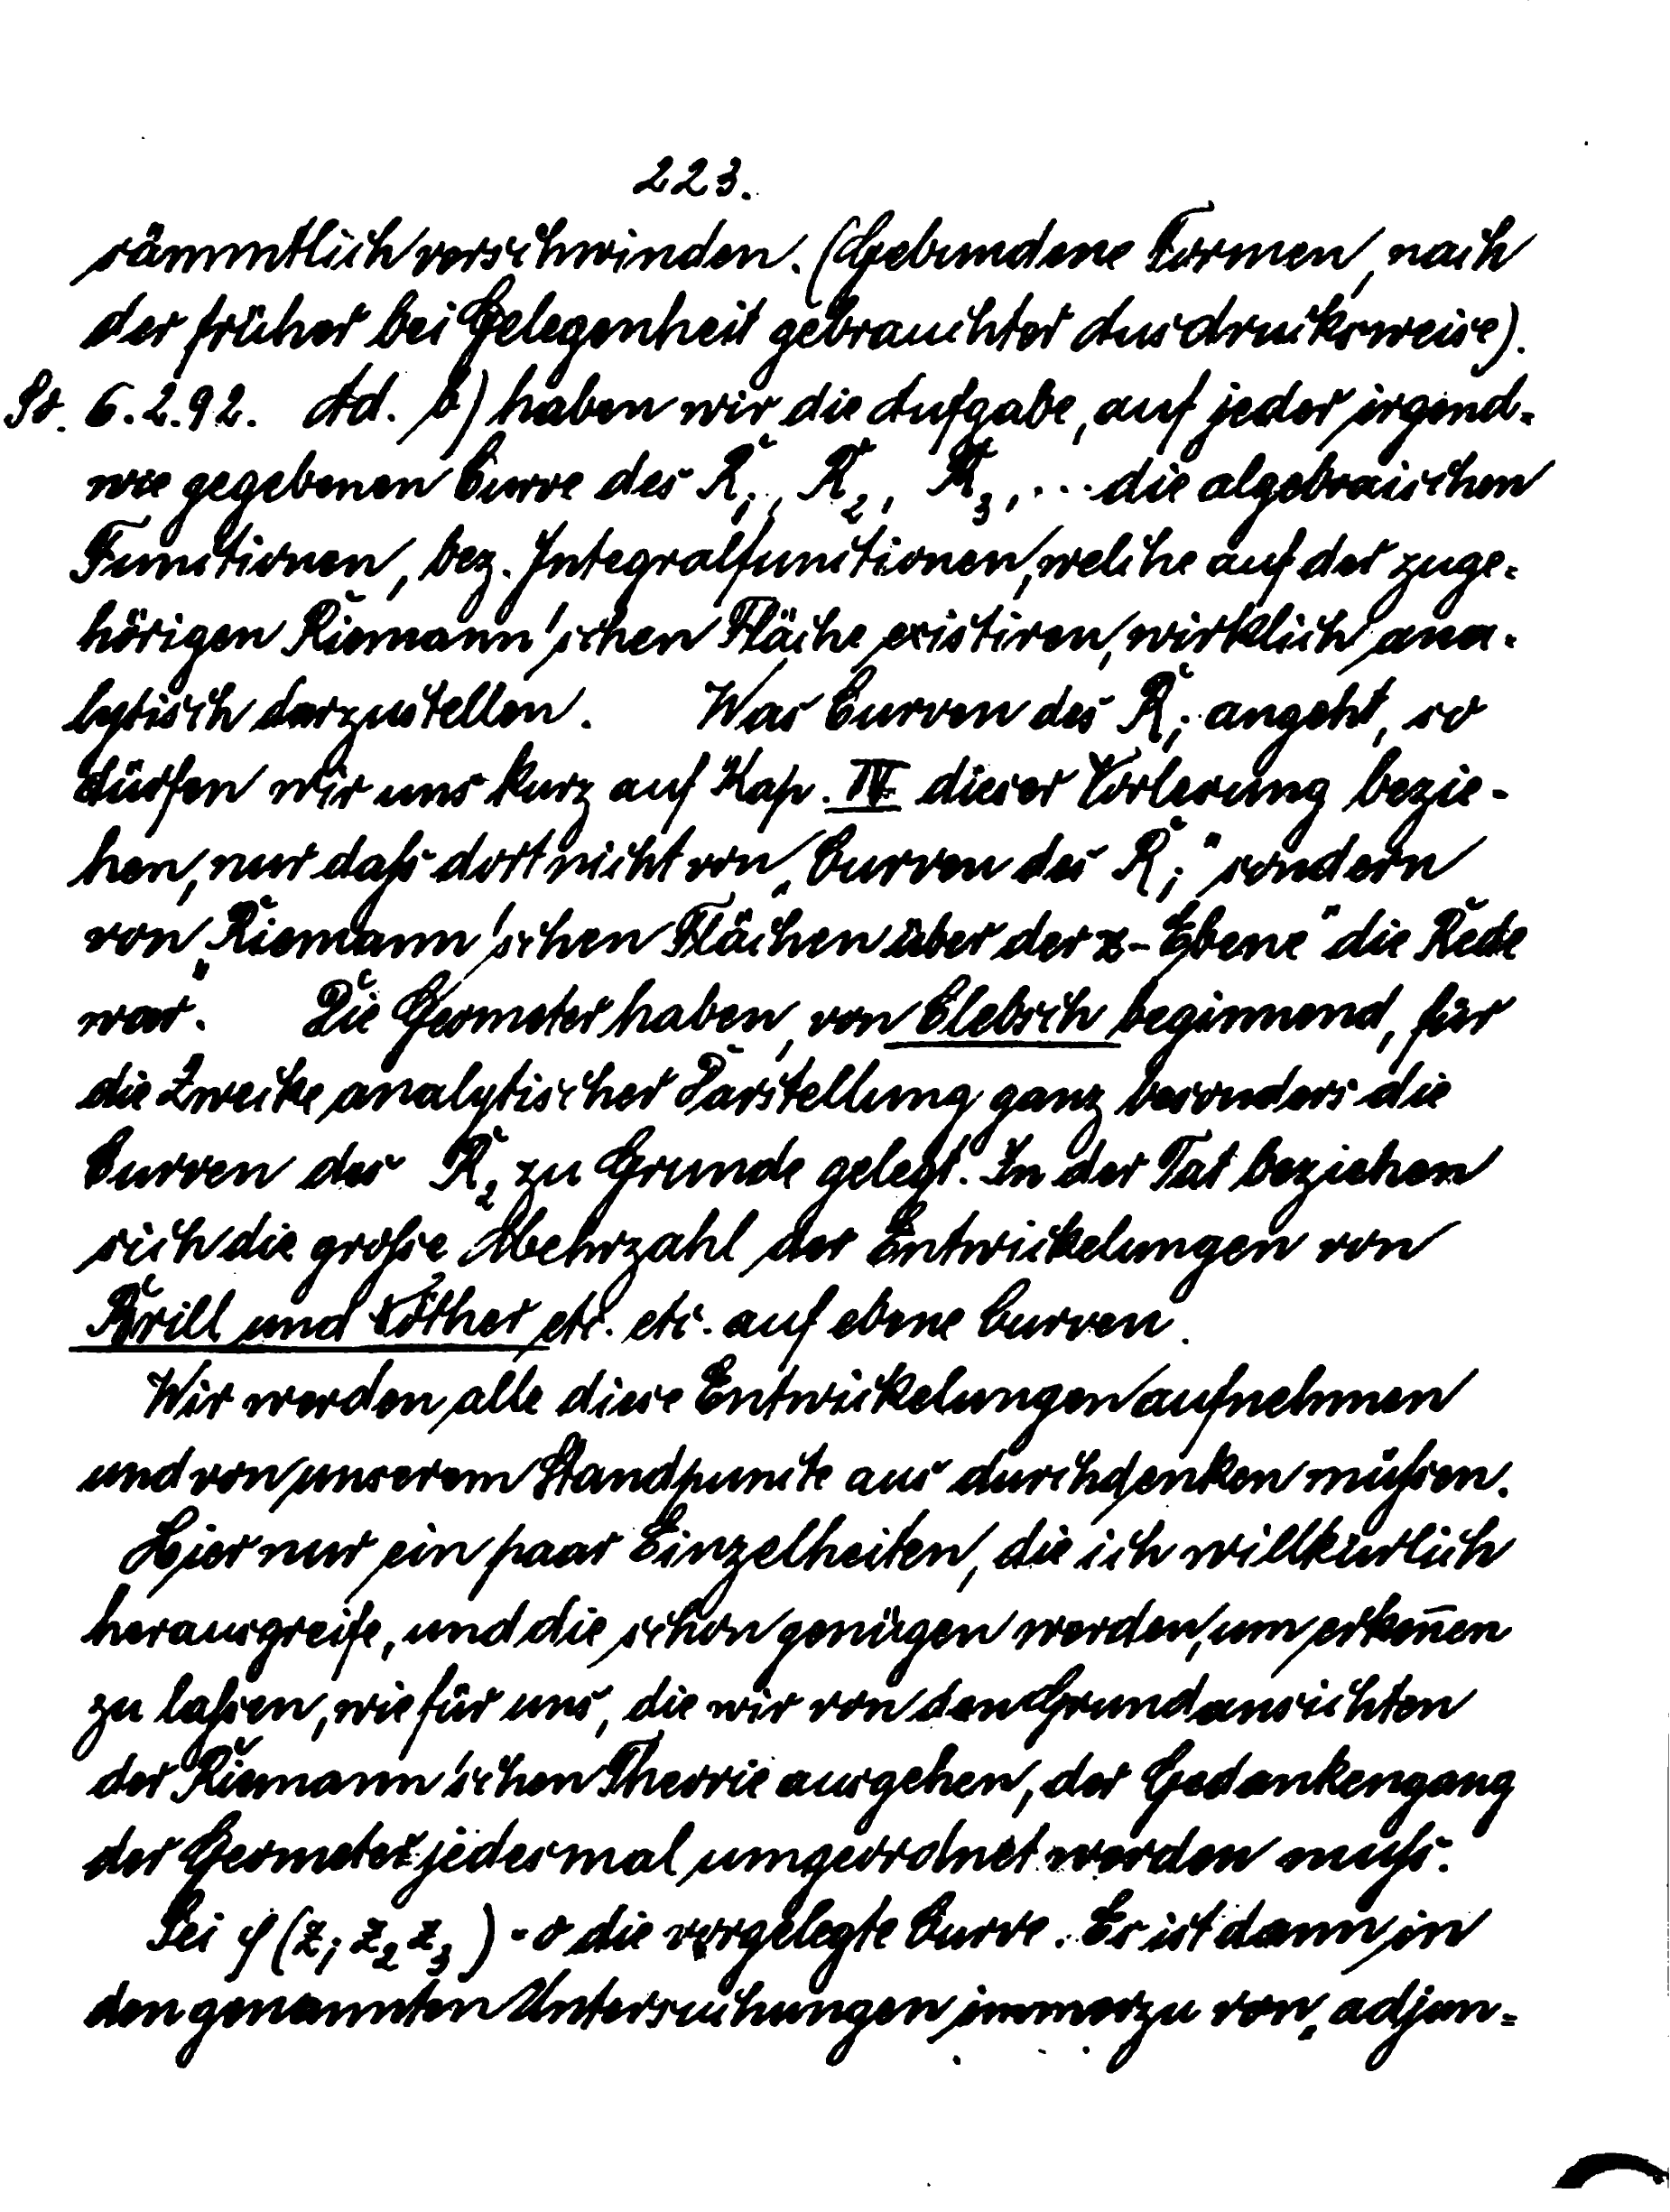 223.
sämmtlich verschwinden. (Gebundene Formen, nach
der früher bei Gelegenheit gebrauchter Ausdrucksweise).
So. 6.2.92. Ad. b) haben wir die Aufgabe, auf jeder irgend-
wie gegebenen Curve des R₁, R₂, R₃, ... die algebraischen
Functionen, bez. Integralfunctionen, welche auf der zuge-
hörigen Riemann'schen Fläche existiren, wirklich ana-
lytisch darzustellen. Was Curven des R₁ angeht, so
dürfen wir uns kurz auf Kap. IV dieser Vorlesung bezie-
hen, nur daß dort nicht von „Curven des R₁" sondern
von „Riemann'schen Flächen über der z-Ebene" die Rede
war. Die Geometer haben, von Clebsch beginnend, für
die Zwecke analytischer Darstellung ganz besonders die
Curven des R₂ zu Grunde gelegt. In der Tat beziehen
sich die große Mehrzahl der Entwickelungen von
Brill und Nöther etc. etc. auf ebene Curven.
Wir werden alle diese Entwickelungen aufnehmen
und von unserem Standpuncte aus durchdenken müßen.
Hier nur ein paar Einzelheiten, die ich willkürlich
herausgreife, und die schon genügen werden, um erkeñen
zu laßen, wie für uns, die wir von den Grundansichten
der Riemann'schen Theorie ausgehen, der Gedankengang
der Geometer jedesmal umgeordnet werden muß.
Sei φ(z₁ z₂ z₃) = 0 die vorgelegte Curve. Es ist dann in
den genannten Untersuchungen immerzu von „adjun-